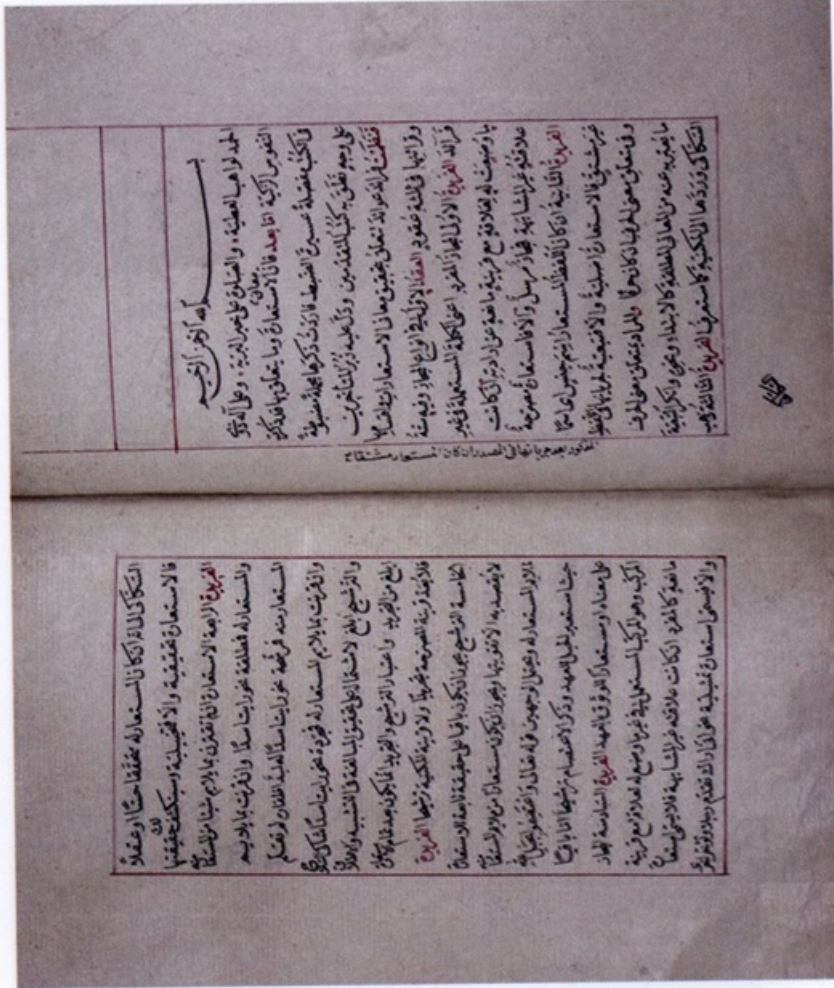 بسم الله الرحمن الرحيم
الحمد لواهب العطية والصلوة على خير البرية وعلى آله ذوي
النفوس الزكية اما بعد فان معاني الاستعارة وما يتعلق بها قد ذكرت
في الكتب مفصلة عسيرة الضبط فاردت ذكرها مجملة مضبوطة
على وجه نطق به كتب المتقدمين ودل عليه زبر المتأخرين
فنظمت فرائد عوائد لتحقيق معاني الاستعارات واقسامها
وقرائنها في ثلثة عقود العقد الاول في انواع المجاز وفيه ست
فرائد الفريدة الاولى المجاز المفرد اعني الكلمة المستعملة في غير
ما وضعت له لعلاقة مع قرينة مانعة عن ارادته ان كانت
علاقته غير المشابهة فمجاز مرسل والا فاستعارة مصرحة
الفريدة الثانية ان كان اللفظ المستعار اسم جنس اي اسما
غير مشتق فالاستعارة اصلية والا فتبعية لجريانها في اللفظ
وفي متعلق معنى الحرف ان كان حرفا والمراد بمتعلق معنى الحرف
ما يعبر به عنه من المعاني المطلقة كالابتداء ونحوه وانكر التبعية
السكاكي وردها الى المكنية كما ستعرفها الفريدة الثالثة ذهب
المذكور بعد جريانها في المصدر ان كان المستعار مشتقا صح
السكاكي
السكاكي الى انه ان كان المستعار له محققا حسا او عقلا
فالاستعارة تحقيقية والا فتخييلية وستنكشف لك حقيقتها
الفريدة الرابعة الاستعارة ان لم تقترن بما يلائم شيئا من المستعار منه
والمستعار له فمطلقة نحو رأيت اسدا وان قرنت بما يلائم
المستعار منه فمرشحة نحو رأيت اسدا له لبد اظفاره لم تقلم
وان قرنت بما يلائم المستعار له فمجردة نحو رأيت اسدا شاكي السلاح
والترشيح ابلغ لاشتماله على تحقيق المبالغة في التشبيه والاطلاق
ابلغ من التجريد واعتبار الترشيح والتجريد انما يكون بعد تمام الاستعارة
فلا تعد قرينة المصرحة تجريدا ولا قرينة المكنية ترشيحا الفريدة
الخامسة الترشيح يجوز ان يكون باقيا على حقيقته تابعا للاستعارة
لا يقصد به الا تقويتها ويجوز ان يكون مستعارا من ملائم المستعار منه
لملائم المستعار له ويحتمل الوجهين قوله تعالى واعتصموا بحبل الله
حيث استعير الحبل للعهد وذكر الاعتصام ترشيحا اما باقيا
على معناه او مستعارا للوثوق بالعهد الفريدة السادسة المجاز
المركب وهو المركب المستعمل في غير ما وضع له لعلاقة مع قرينة
مانعة كالمفرد ان كانت علاقته غير المشابهة فلا يسمى استعارة
والا يسمى استعارة تمثيلية نحو اني اراك تقدم رجلا وتؤخر اخرى